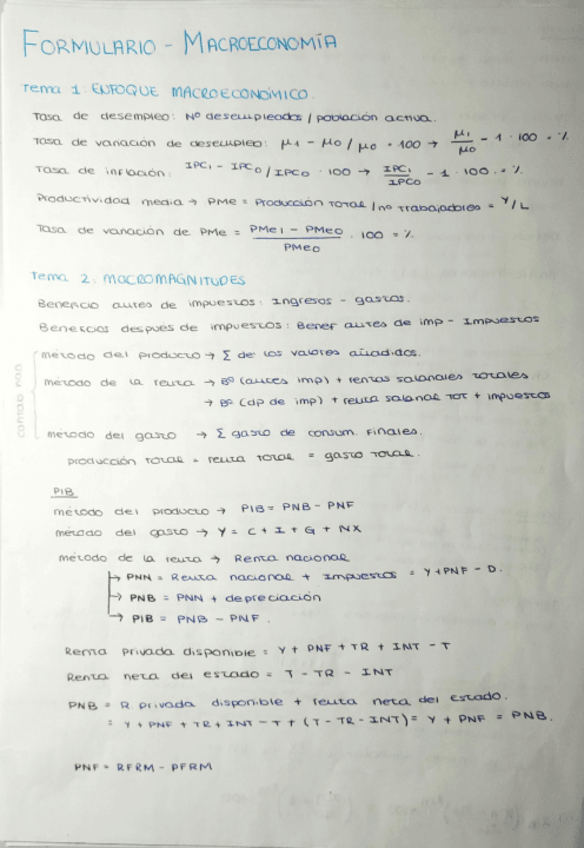 FORMULARIO - MACROECONOMÍA
Tema 1. ENFOQUE MACROECONÓMICO.
Tasa de desempleo: Nº desempleados / población activa.
Tasa de variación de desempleo: μ1 - μ0 / μ0 · 100 → μ1/μ0 - 1 · 100 = %
Tasa de inflación: IPC1 - IPC0 / IPC0 · 100 → IPC1/IPC0 - 1 · 100 = %
Productividad media → PMe = Producción Total / nº trabajadores = Y/L
Tasa de variación de PMe = PMe1 - PMe0 / PMe0 · 100 = %
Tema 2. MACROMAGNITUDES
Beneficio antes de impuestos: Ingresos - gastos.
Beneficios después de impuestos: Benef antes de imp - Impuestos
método del producto → Σ de los valores añadidos.
método de la renta → Bº (antes imp) + rentas salariales totales
→ Bº (dp de imp) + renta salarial TOT + impuestos
método del gasto → Σ gasto de consum. Finales.
producción total = renta total = gasto total.
PIB
método del producto → PIB = PNB - PNF
método del gasto → Y = C + I + G + NX
método de la renta → Renta nacional
→ PNN = Renta nacional + Impuestos = Y + PNF - D.
→ PNB = PNN + depreciación
→ PIB = PNB - PNF.
Renta privada disponible = Y + PNF + TR + INT - T
Renta neta del estado = T - TR - INT
PNB = R privada disponible + renta neta del estado.
= Y + PNF + TR + INT - T + (T - TR - INT) = Y + PNF = PNB.
PNF = RFRM - PFRM